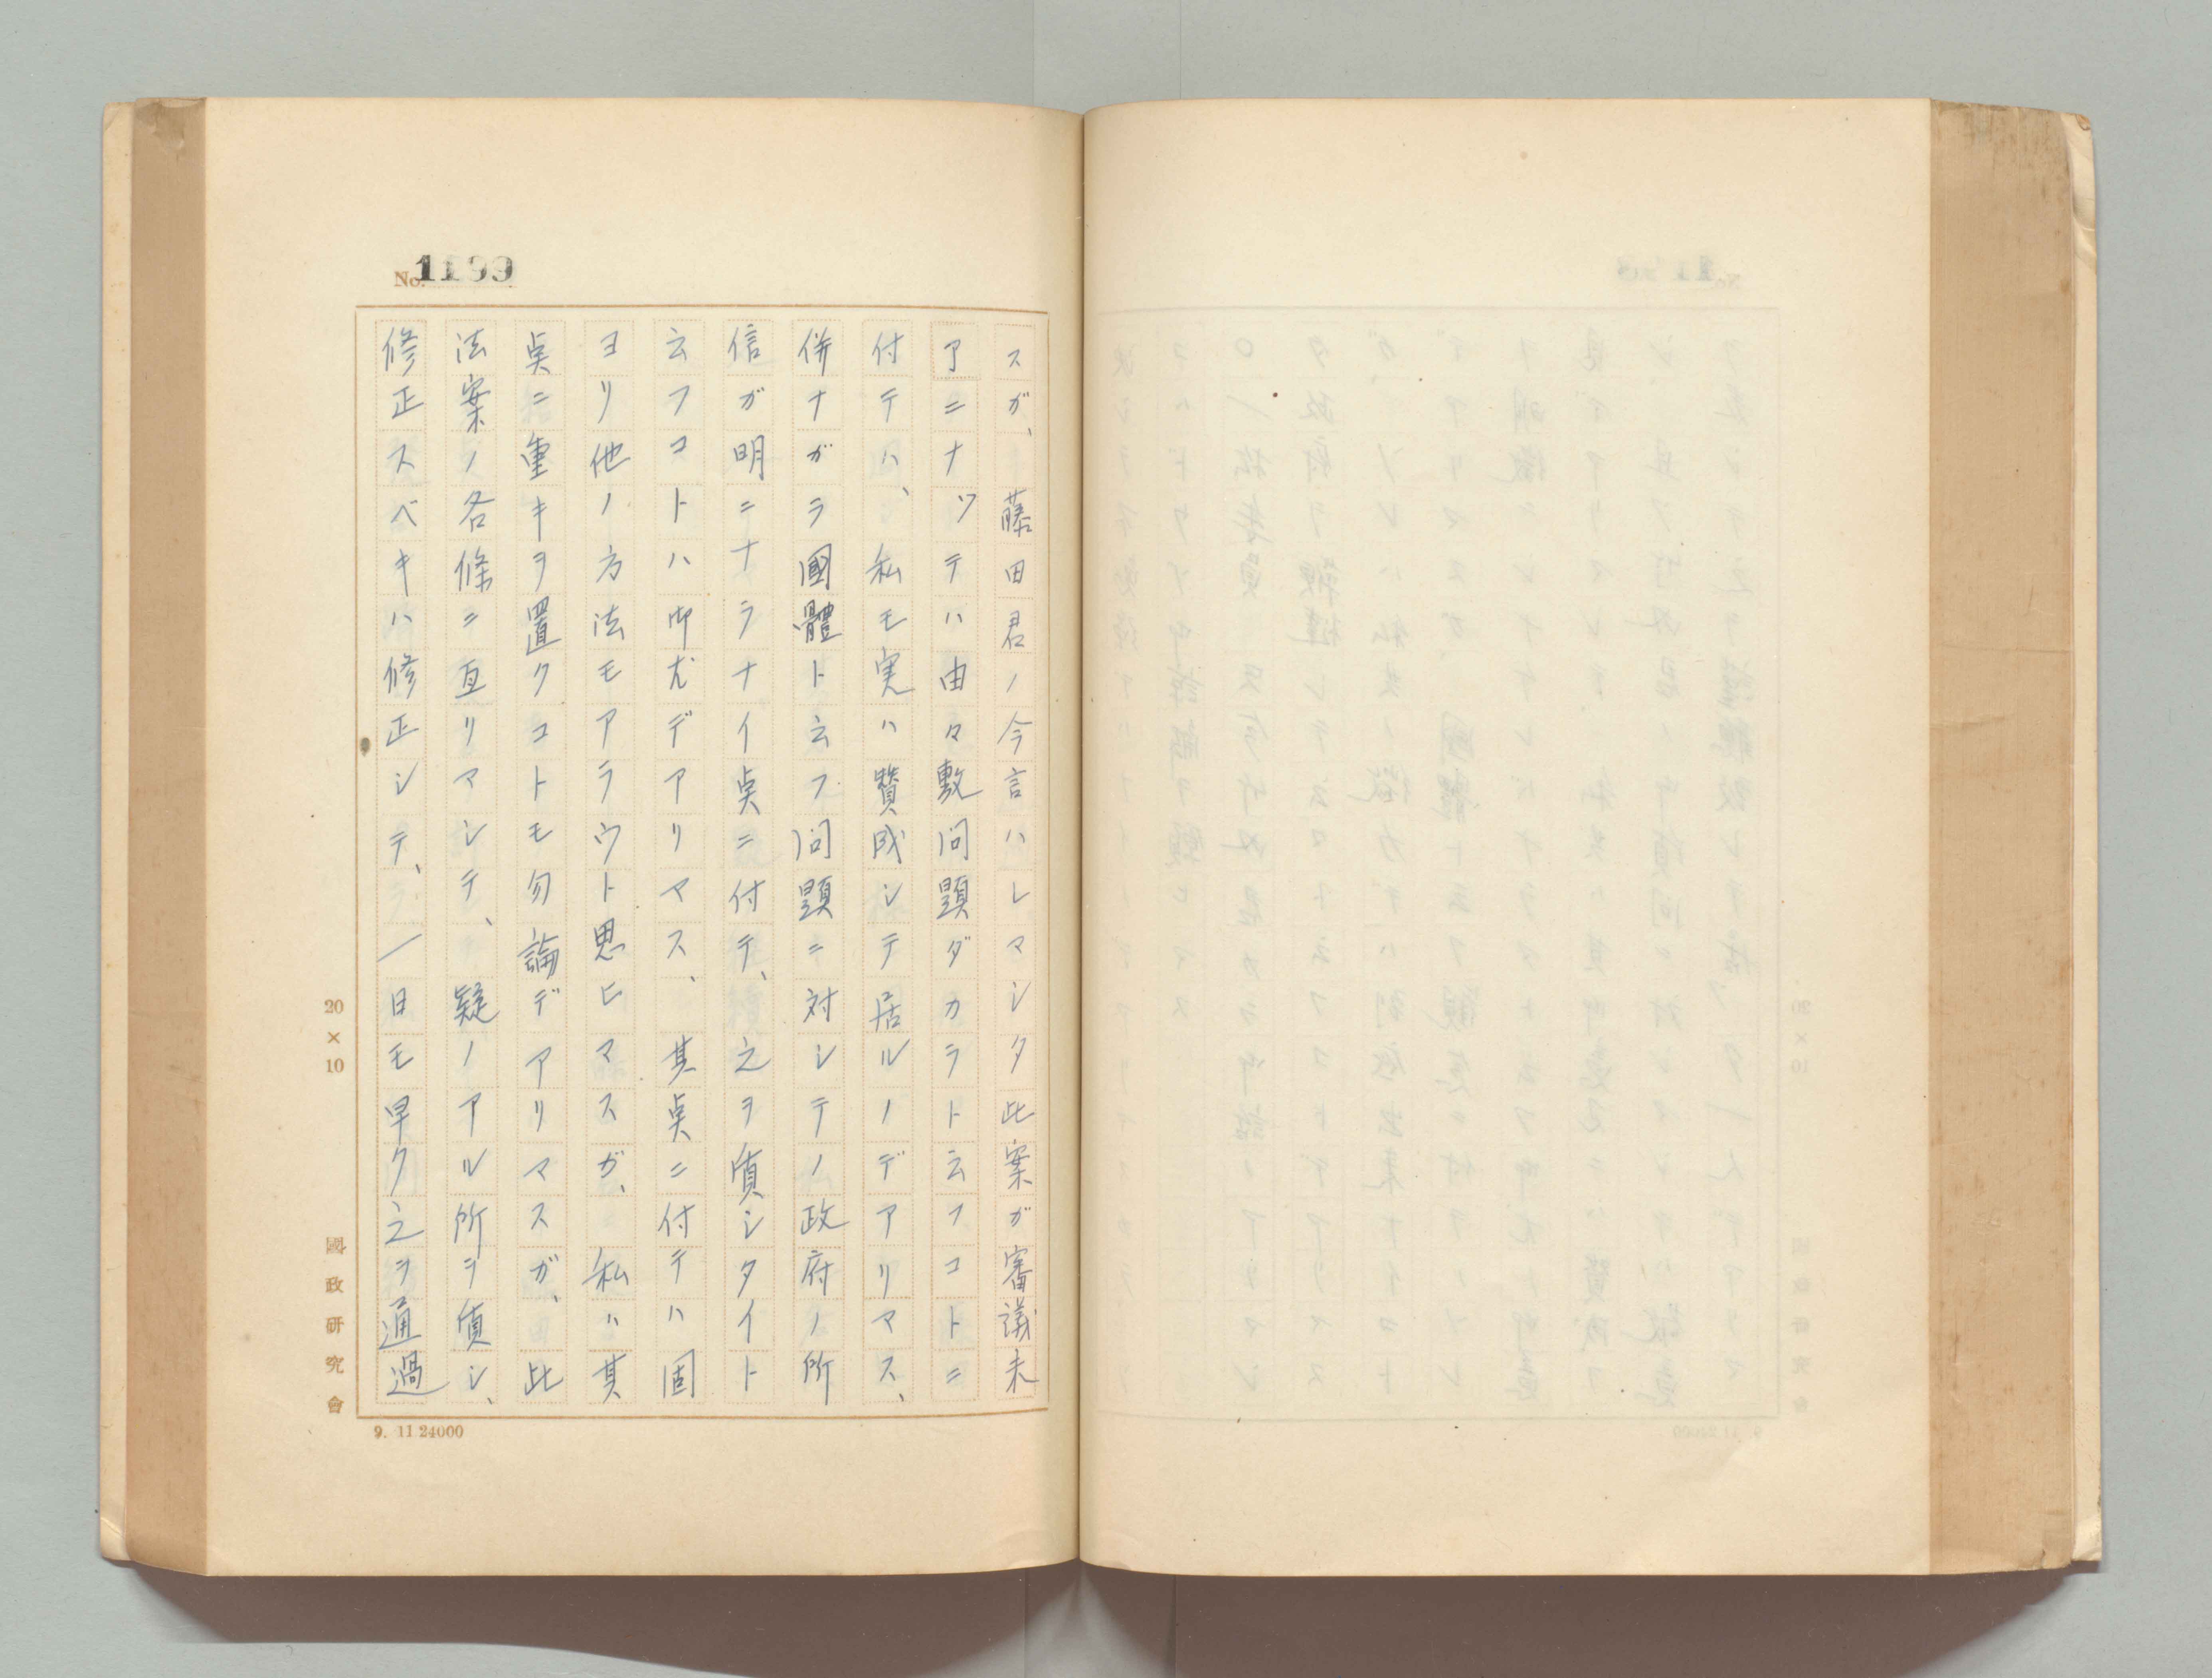 No. 1199
スガ、藤田君ノ今言ハレマシタ此案ガ審議未
了ニナツテハ由々敷問題ダカラト云フコトニ
付テハ、私モ実ハ賛成シテ居ルノデアリマス、
併ナガラ國體ト云フ問題ニ対シテノ政府ノ所
信ガ明ニナラナイ点ニ付テ、之ヲ質シタイト
云フコトハ御尤デアリマス、其点ニ付テハ固
ヨリ他ノ方法モアラウト思ヒマスガ、私ハ其
点ニ重キヲ置クコトモ勿論デアリマスガ、此
法案ノ各條ニ亙リマシテ、疑ノアル所ヲ質シ、
修正スベキハ修正シテ、一日モ早ク之ヲ通過
20×10
國政研究會
9. 11 24000